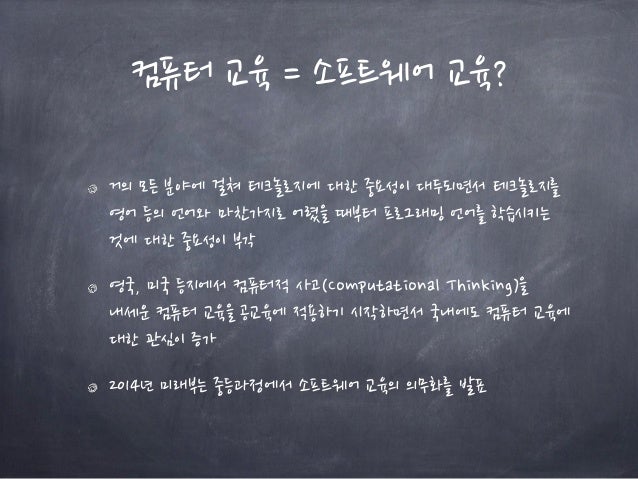 컴퓨터 교육 = 소프트웨어 교육?
거의 모든 분야에 걸쳐 테크놀로지에 대한 중요성이 대두되면서 테크놀로지를
영어 등의 언어와 마찬가지로 어렸을 때부터 프로그래밍 언어를 학습시키는
것에 대한 중요성이 부각
영국, 미국 등지에서 컴퓨터적 사고(Computational Thinking)을
내세운 컴퓨터 교육을 공교육에 적용하기 시작하면서 국내에도 컴퓨터 교육에
대한 관심이 증가
2014년 미래부는 중등과정에서 소프트웨어 교육의 의무화를 발표